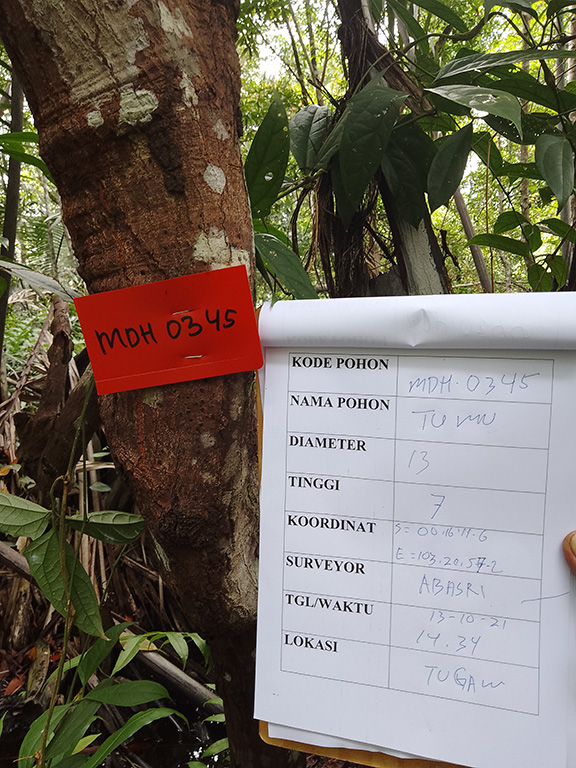 MDH 0345
KODE POHON MDH. 0345
NAMA POHON TUMU
DIAMETER 13
TINGGI 7
KOORDINAT S=00.16'11.6
E=103.20.57.2
SURVEYOR ABASRI
TGL/WAKTU 13-10-21
14.34
LOKASI